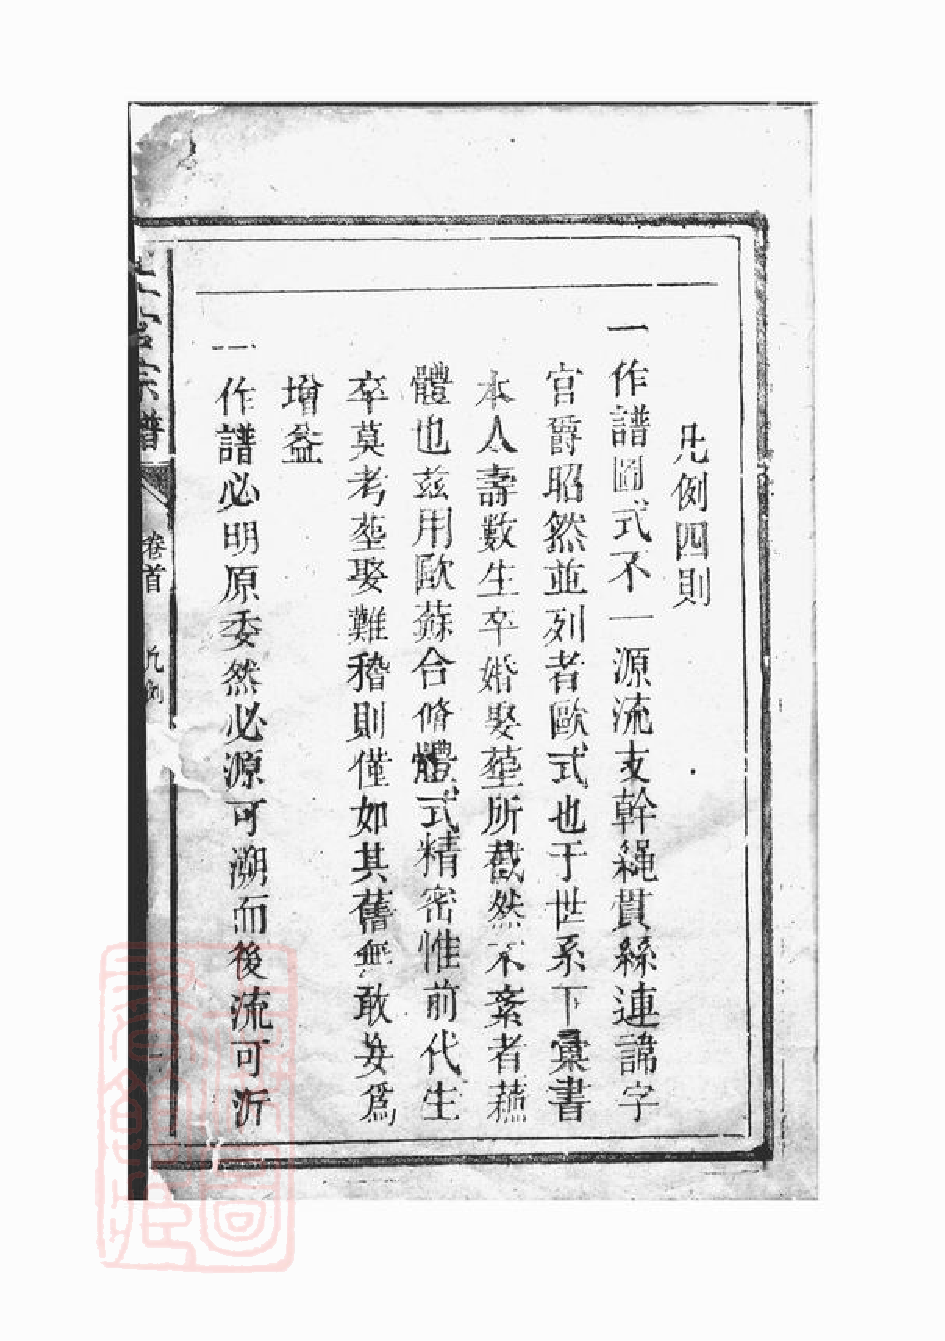 凡例四則
一作譜圖式不一源流支幹繩貫絲連諱字
官爵昭然並列者歐式也于世系下彙書
本人壽數生卒婚娶塟所截然不紊者蘓
體也茲用歐蘇合脩體式精密惟前代生
卒莫考塟娶難稽則僅如其舊無敢妄爲
增益
一作譜必明原委然必源可溯而後流可沂
上官宗譜
卷首
凡例